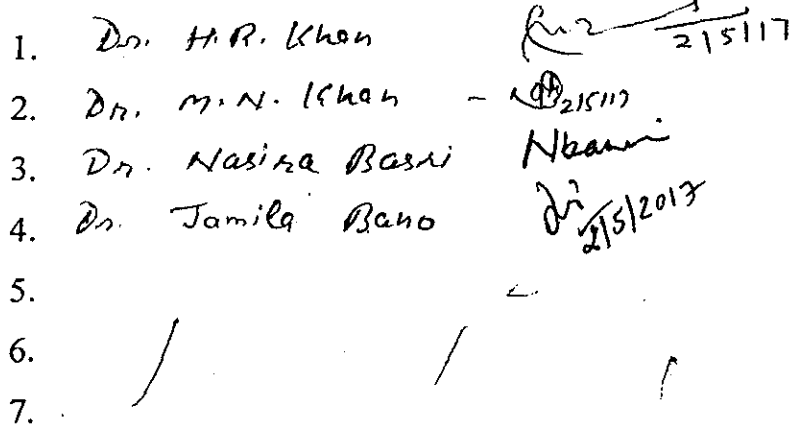 1. Dr. H.R. Khan 2/5/17
2. Dr. M.N. Khan - 2/5/17
3. Dr. Nasira Basri
4. Dr. Jamila Bano 2/5/2017
5.
6.
7.